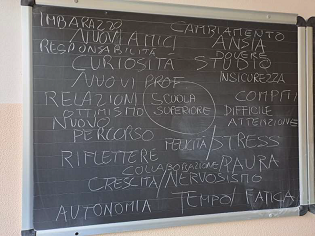 IMBARAZZO CAMBIAMENTO
NUOVI AMICI ANSIA
RESPONSABILITÀ DOVERE
CURIOSITÀ STUDIO
NUOVI PROF INSICUREZZA
RELAZIONI SCUOLA COMPITI
OTTIMISMO SUPERIORE DIFFICILE
NUOVO ATTENZIONE
PERCORSO FELICITÀ STRESS
RIFLETTERE COLLABORAZIONE PAURA
CRESCITA NERVOSISMO
AUTONOMIA TEMPO FATICA